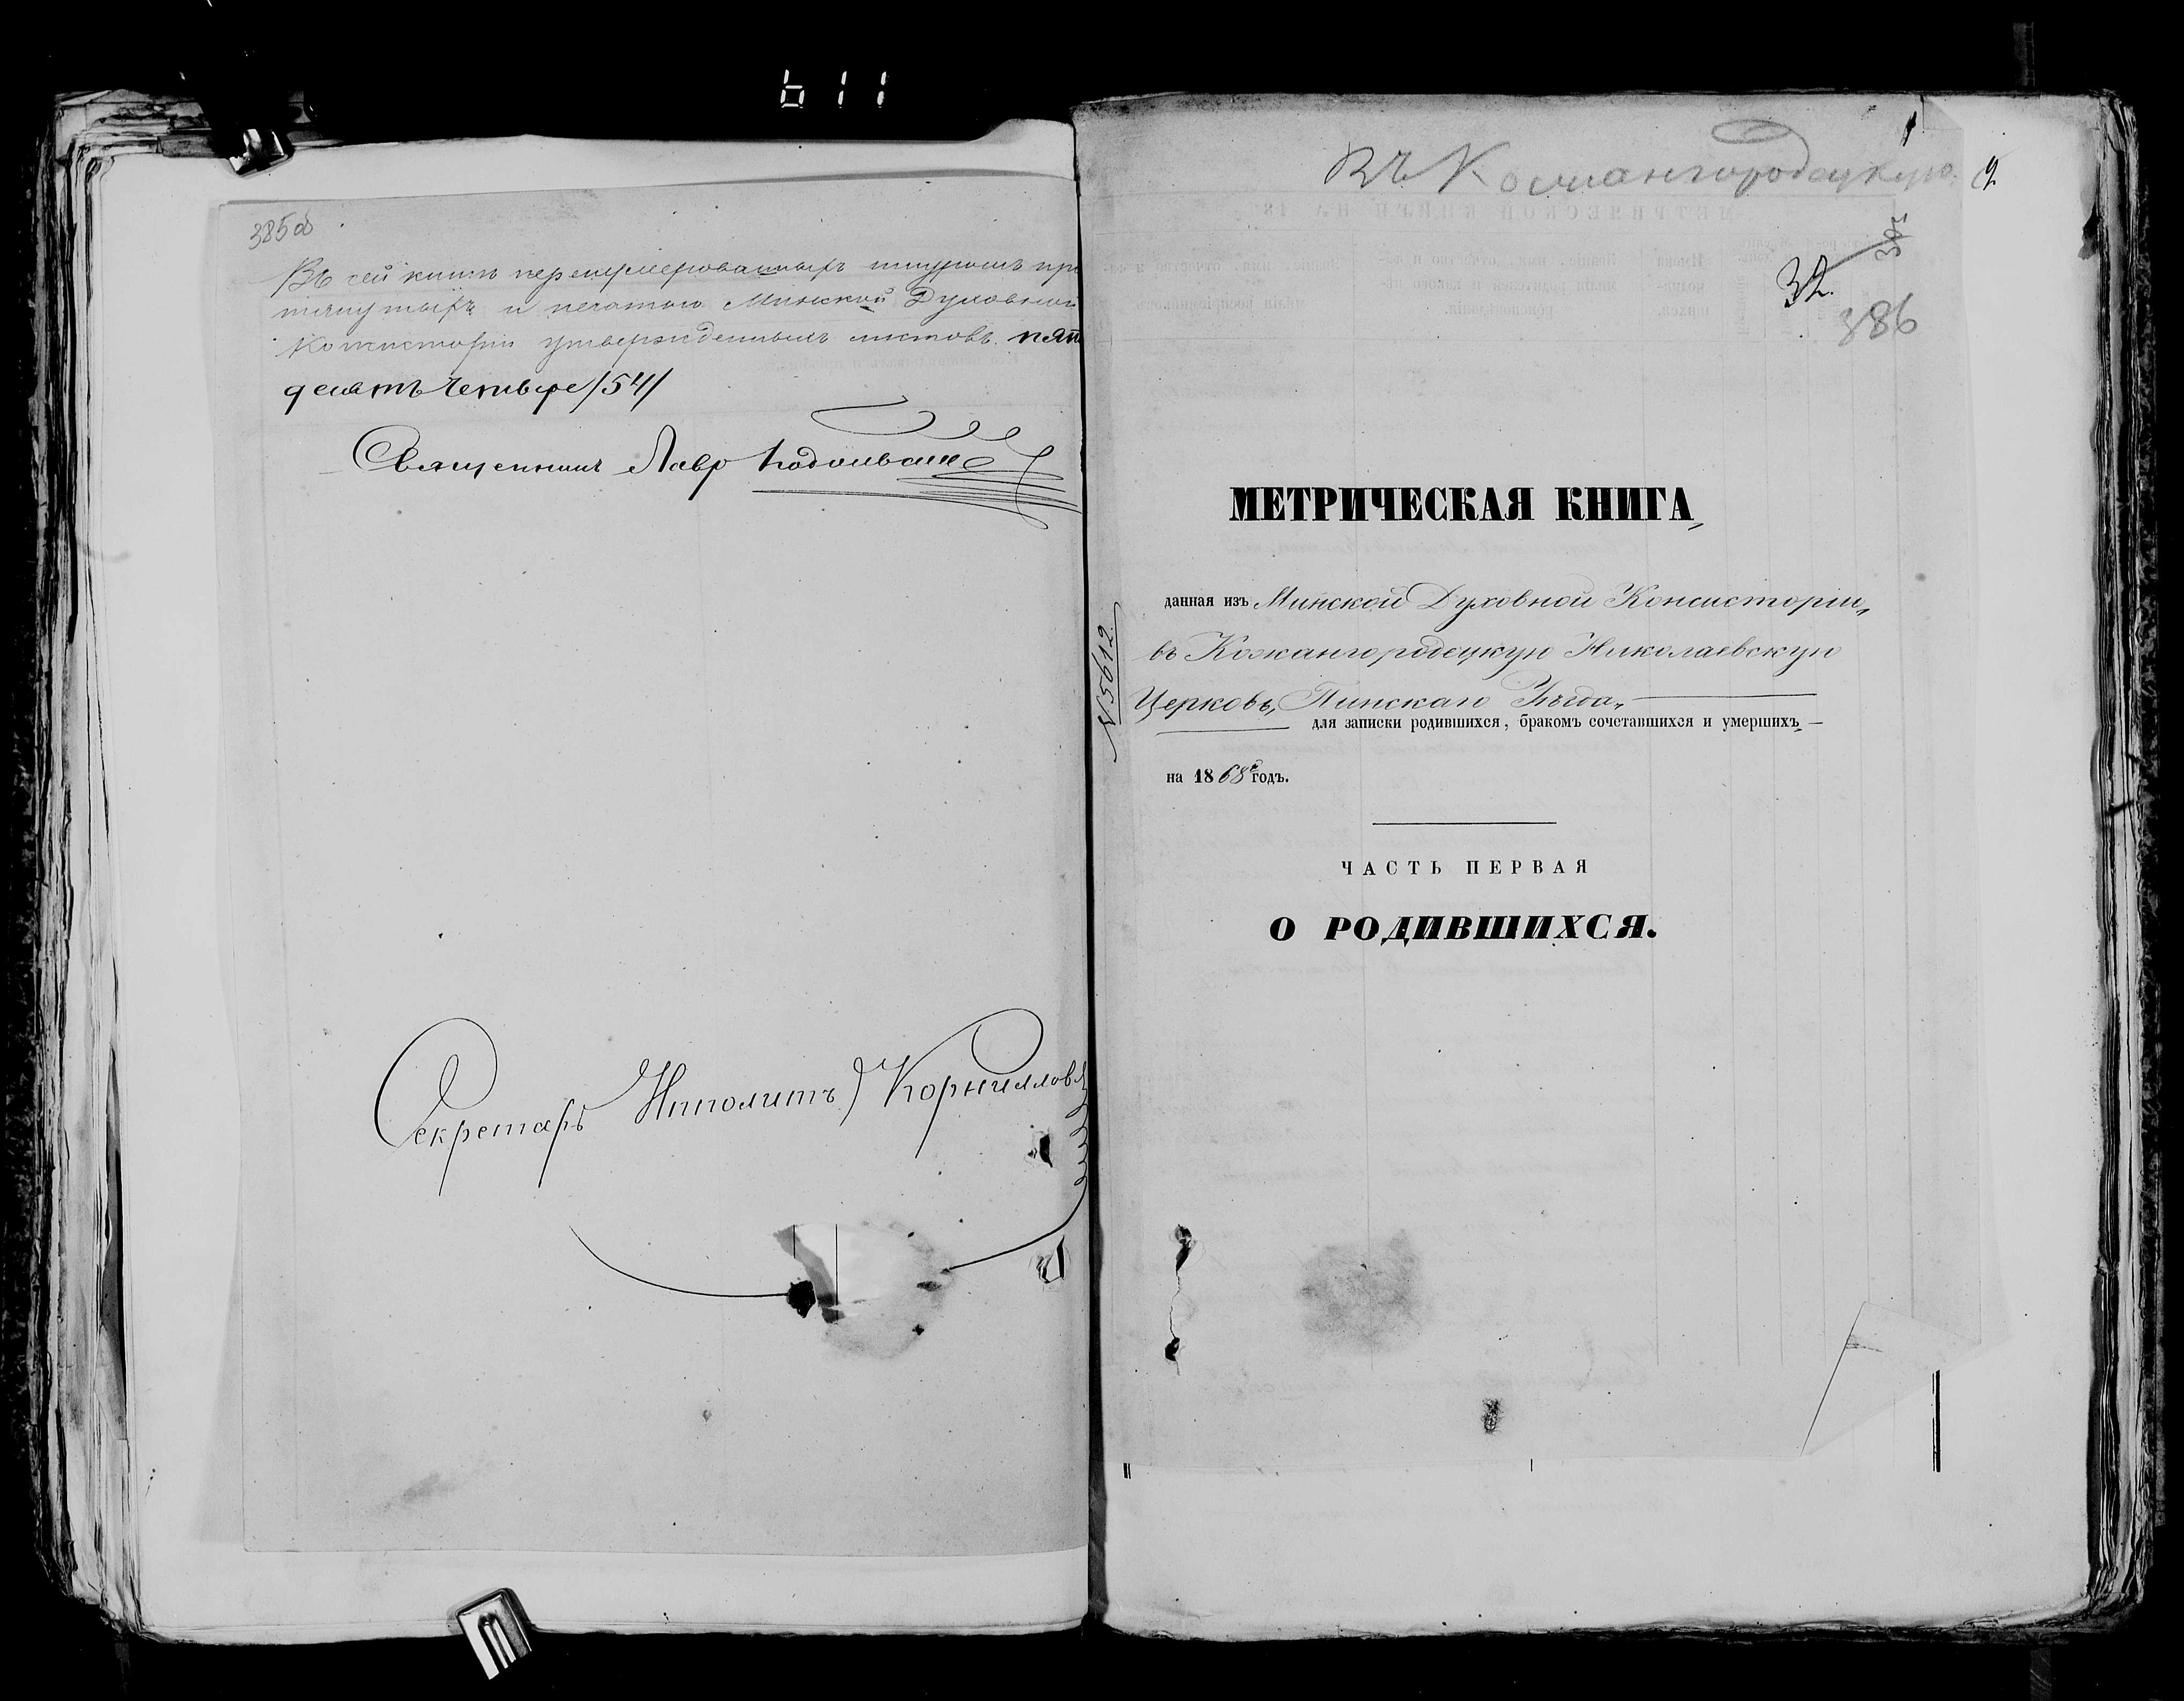 611
385об
Въ сей книгѣ перенумерованныхъ шнуромъ про
тянутыхъ и печатью Минской Духовной
Консисторіи утвержденныхъ листовъ пят
десятъ четыре /54/
Священникъ Лавр
Секретарь Ипполитъ Корниловъ
Въ Кожангородецкую
2
32.
386
МЕТРИЧЕСКАЯ КНИГА,
данная изъ Минской Духовной Консисторіи,
въ Кожангородецкую Николаевскую
Церковь, Пинскаго Уѣзда,
для записки родившихся, бракомъ сочетавшихся и умершихъ,
на 1868й годъ.
N 5612
ЧАСТЬ ПЕРВАЯ
О РОДИВШИХСЯ.